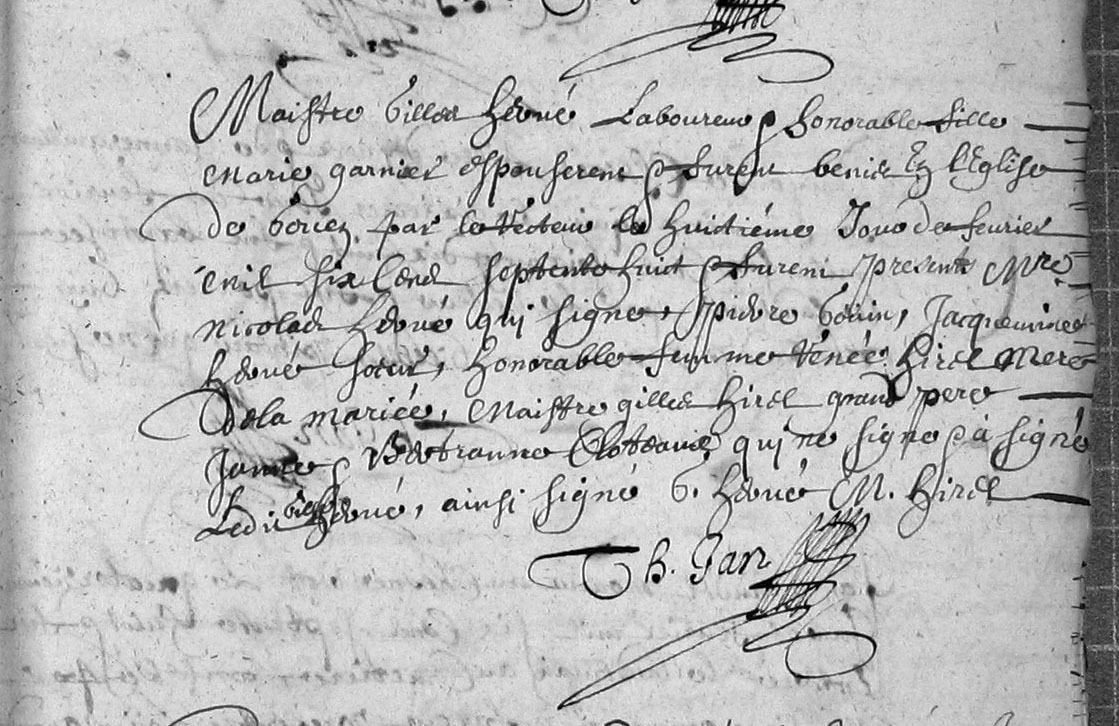 Maistre Gilles Hervé Laboureur & honorable fille
Marie garnier Espouserent & furent benis En l'Eglise
De par le Recteur le huitiéme Jour de feurier
mil six Cens septente huict & furent presents Mre
Nicolas Hervé qui signe, pierre Jacquemine
Hervé sœur, honorable femme Renée Hirel mere
Dela mariée, Maistre gilles Hirel grand pere
& Bertranne qui ne signe & à signé
Ledit Gilles Hervé, ainsi signé G. Hervé M. Hirel
Th. Jan